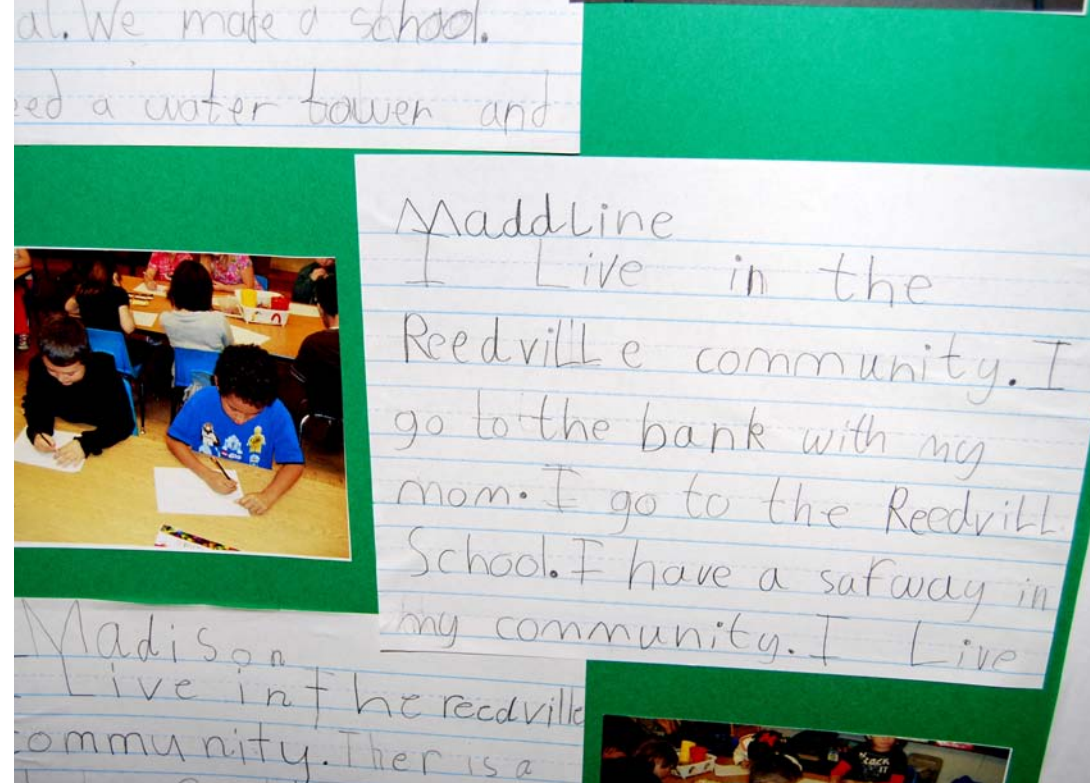 al. We made a school.
eed a water tower and
Maddline
I Live in the
Reedville community. I
go to the bank with my
mom. I go to the Reedvill
School. I have a safway in
my community. I Live
Madison
I Live in the reedville
community. Ther is a